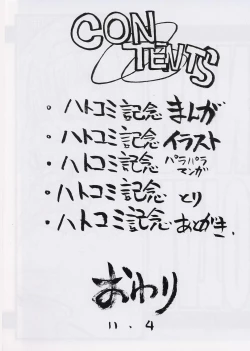 CONTENTS
・ハトコミ記念 まんが
・ハトコミ記念 イラスト
・ハトコミ記念 パラパラマンガ
・ハトコミ記念 とり
・ハトコミ記念 あとがき.
おわり
11.4